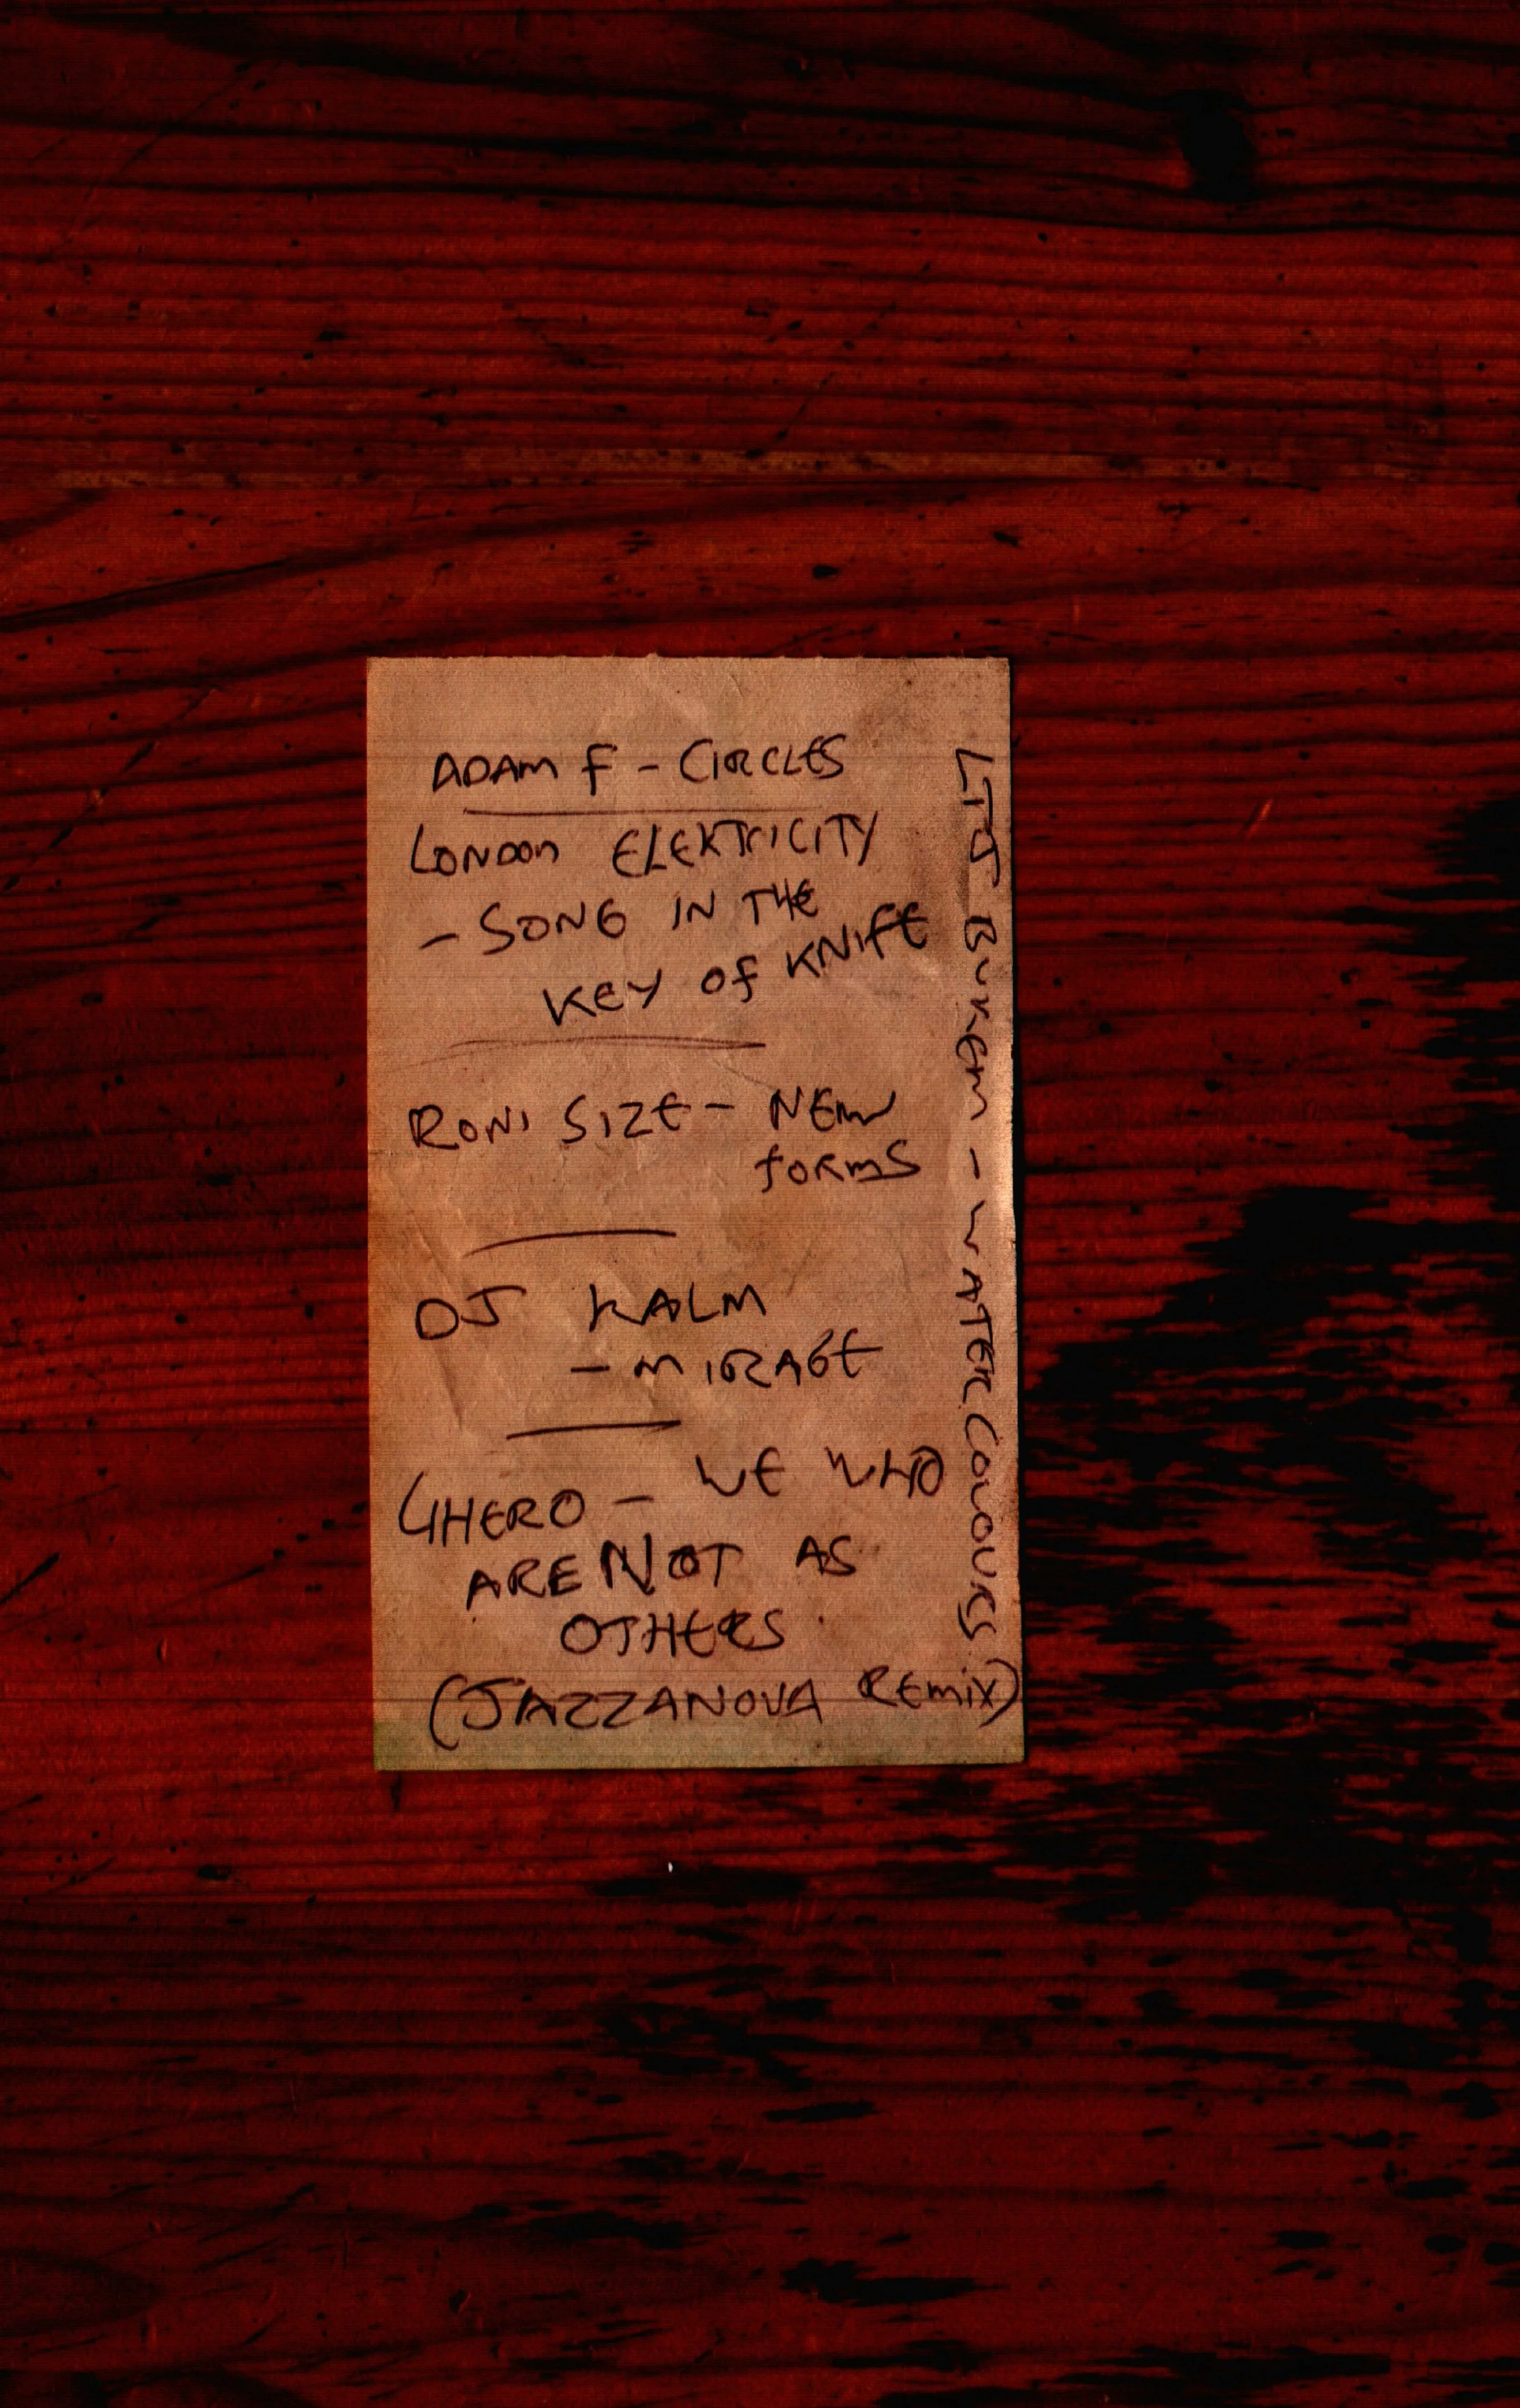 ADAM F - CIRCLES
LONDON ELEKTRICITY
- SONG IN THE
KEY OF KNIFE
RONI SIZE - NEW
FORMS
DJ KALM
- MIRAGE
4HERO - WE WHO
ARE NOT AS
OTHERS
(JAZZANOVA REMIX)
LTJ BUKEM - WATERCOLOURS